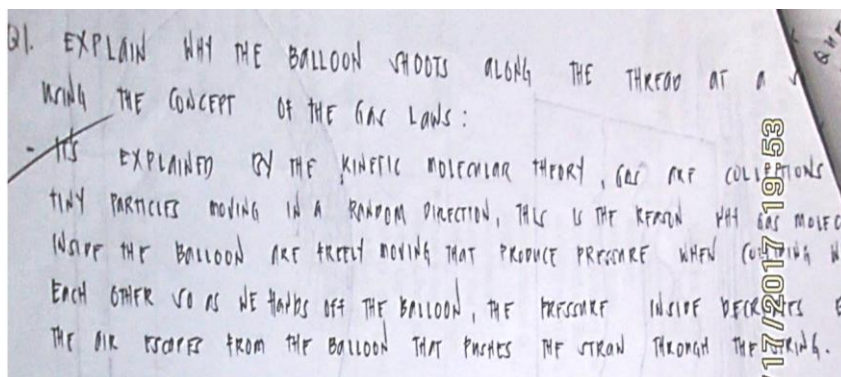 Q1. EXPLAIN WHY THE BALLOON SHOOTS ALONG THE THREAD AT A
USING THE CONCEPT OF THE GAS LAWS:
- IT'S EXPLAINED BY THE KINETIC MOLECULAR THEORY, GAS ARE COLLECTIONS
TINY PARTICLES MOVING IN A RANDOM DIRECTION, THIS IS THE REASON WHY GAS MOLEC
INSIDE THE BALLOON ARE FREELY MOVING THAT PRODUCE PRESSURE WHEN COLLIDING W
EACH OTHER SO AS WE HANDS OFF THE BALLOON, THE PRESSURE INSIDE DECREASES
THE AIR ESCAPES FROM THE BALLOON THAT PUSHES THE STRAW THROUGH THE STRING.
17/2017 19:53